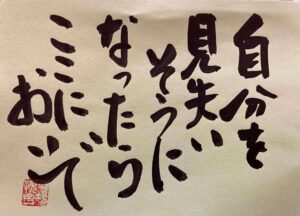 自分を
見失い
そうに
なったり
ここに
おいで